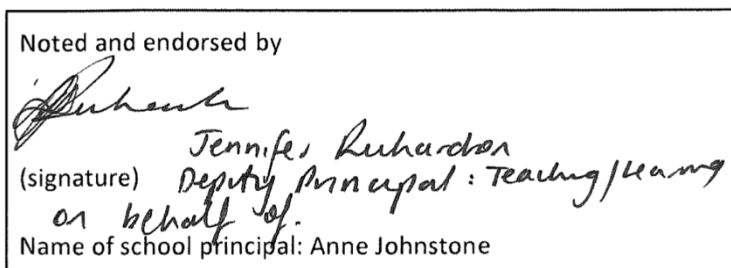 Noted and endorsed by
Jennifer Richardson
(signature) Deputy Principal : Teaching/Learning
on behalf of.
Name of school principal: Anne Johnstone